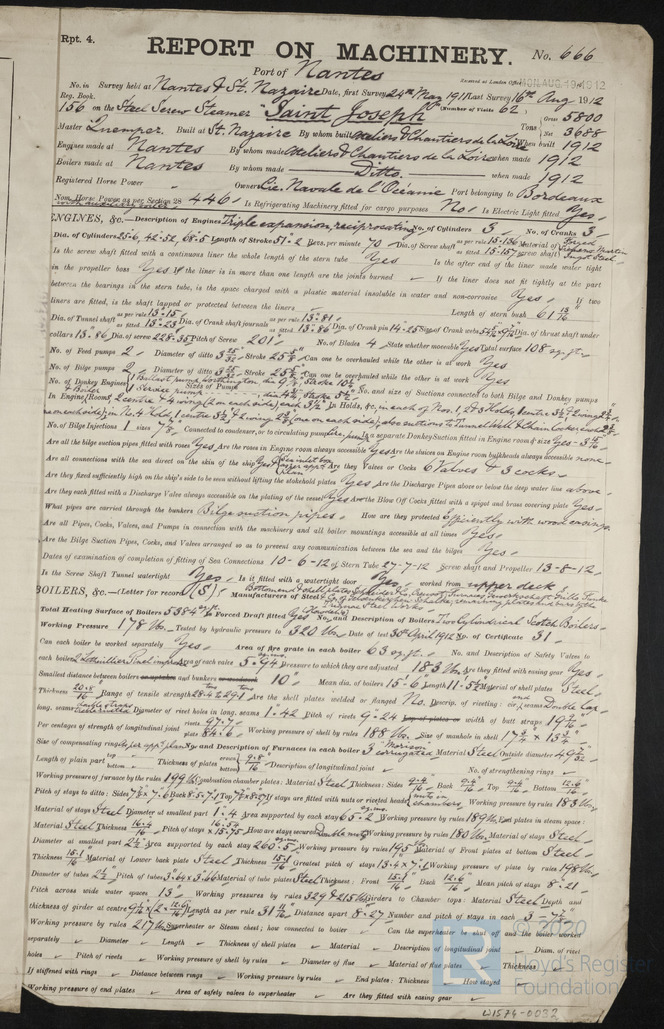 Rpt. 4.
REPORT ON MACHINERY. No. 666
Port of Nantes
Received at London Office MON. AUG. 19 1912
No. in Survey held at Nantes & St. Nazaire Date, first Survey 24th May 1911 Last Survey 16th Aug 1912
Reg. Book. (Number of Visits 62)
156 on the Steel Screw Steamer "Saint Joseph" Tons Gross 5800 Net 3688
Master Quemper. Built at St. Nazaire By whom built Ateliers & Chantiers de la Loire When built 1912
Engines made at Nantes By whom made Ateliers & Chantiers de la Loire when made 1912
Boilers made at Nantes By whom made Ditto. when made 1912
Registered Horse Power Owners Cie. Navale de l'Océanie Port belonging to Bordeaux
Nom. Horse Power as per Section 28 446 Is Refrigerating Machinery fitted for cargo purposes No Is Electric Light fitted Yes
ENGINES, &c.—Description of Engines Triple expansion, reciprocating No. of Cylinders 3 No. of Cranks 3
Dia. of Cylinders 25.6, 42.52, 68.5 Length of Stroke 51.2 Revs. per minute 70 Dia. of Screw shaft as per rule 15.136 as fitted 15.157 Material of screw shaft Forged Siemens Martin Ingot Steel
Is the screw shaft fitted with a continuous liner the whole length of the stern tube Yes Is the after end of the liner made water tight
in the propeller boss Yes If the liner is in more than one length are the joints burned If the liner does not fit tightly at the part
between the bearings in the stern tube, is the space charged with a plastic material insoluble in water and non-corrosive Yes If two
liners are fitted, is the shaft lapped or protected between the liners Length of stern bush 61 13/16"
Dia. of Tunnel shaft as per rule 13.15 as fitted 15.23 Dia. of Crank shaft journals as per rule 13.81 as fitted 13.86 Dia. of Crank pin 14.25 Size of Crank webs Dia. of thrust shaft under
collars 13.86 Dia. of screw 228.35 Pitch of Screw 201 No. of Blades 4 State whether moveable Yes Total surface 108 sq. ft.
No. of Feed pumps 2 Diameter of ditto 3 25/32 Stroke 25 5/8 Can one be overhauled while the other is at work Yes
No. of Bilge pumps 2 Diameter of ditto 3 25/32 Stroke 25 5/8 Can one be overhauled while the other is at work Yes
No. of Donkey Engines Sizes of Pumps No. and size of Suctions connected to both Bilge and Donkey pumps
In Engine Room 2 centre & 4 wing (2 on each side), each 3 1/2" In Holds, &c. in each of Nos. 1, 2 & 3 Holds, 1 centre 3 1/2
No. of Bilge Injections 1 sizes 7 7/8 Connected to condenser, or to circulating pump Is a separate Donkey Suction fitted in Engine room & size Yes - 3 4/16
Are all the bilge suction pipes fitted with roses Yes Are the roses in Engine room always accessible Yes Are the sluices on Engine room bulkheads always accessible none
Are all connections with the sea direct on the skin of the ship Yes Are they Valves or Cocks 6 Valves & 3 cocks
Are they fixed sufficiently high on the ship's side to be seen without lifting the stokehold plates Yes Are the Discharge Pipes above or below the deep water line above
Are they each fitted with a Discharge Valve always accessible on the plating of the vessel Yes Are the Blow Off Cocks fitted with a spigot and brass covering plate Yes
What pipes are carried through the bunkers Bilge suction pipes How are they protected Efficiently with wood casings
Are all Pipes, Cocks, Valves, and Pumps in connection with the machinery and all boiler mountings accessible at all times Yes
Are the Bilge Suction Pipes, Cocks, and Valves arranged so as to prevent any communication between the sea and the bilges Yes
Dates of examination of completion of fitting of Sea Connections 10-6-12 of Stern Tube 27-7-12 Screw shaft and Propeller 13-8-12
Is the Screw Shaft Tunnel watertight Yes Is it fitted with a watertight door Yes worked from upper deck
BOILERS, &c.—(Letter for record (S)) Manufacturers of Steel
Total Heating Surface of Boilers 5384 sq. ft. Is Forced Draft fitted Yes No. and Description of Boilers Two Cylindrical Scotch Boilers
Working Pressure 178 lbs. Tested by hydraulic pressure to 320 lbs. Date of test 30th April 1912 No. of Certificate 31
Can each boiler be worked separately Yes Area of fire grate in each boiler 63 sq. ft. No. and Description of Safety Valves to
each boiler Area of each valve 5.94 Pressure to which they are adjusted 183 lbs Are they fitted with easing gear Yes
Smallest distance between boilers or uptakes and bunkers or woodwork 10" Mean dia. of boilers 15'-6" Length 11'-5 1/2" Material of shell plates Steel
Thickness 20.8/16 Range of tensile strength 28.4 to 29.1 Are the shell plates welded or flanged No Descrip. of riveting: cir. seams Double Lap
long. seams Diameter of rivet holes in long. seams 1.42 Pitch of rivets 9.24 Lap of plates or width of butt straps 19 9/16
Per centages of strength of longitudinal joint rivets 97.7 plate 84.6 Working pressure of shell by rules 188 lbs Size of manhole in shell 17 3/4 x 13 3/4
Size of compensating ring As per app. plan No. and Description of Furnaces in each boiler 3 Morison corrugated Material Steel Outside diameter 49 7/32
Length of plain part top bottom Thickness of plates crown bottom 9.8/16 Description of longitudinal joint No. of strengthening rings
Working pressure of furnace by the rules 199 lbs Combustion chamber plates: Material Steel Thickness: Sides 9.4/16 Back 9.4/16 Top 9.4/16 Bottom 12.6/16
Pitch of stays to ditto: Sides Back 8.5 x 7.1 Top If stays are fitted with nuts or riveted heads nuts in chambers Working pressure by rules 183 lbs
Material of stays Steel Diameter at smallest part 1.4 Area supported by each stay 65.2 Working pressure by rules 189 lbs End plates in steam space:
Material Steel Thickness 16.4/16 Pitch of stays 16.54 x 15.75 How are stays secured Double nuts Working pressure by rules 180 lbs Material of stays Steel
Diameter at smallest part 2 1/2 Area supported by each stay 260.5 Working pressure by rules 195 Material of Front plates at bottom Steel
Thickness 15.1/16 Material of Lower back plate Steel Thickness 15.1/16 Greatest pitch of stays 13.4 x 7.1 Working pressure of plate by rules 198 lbs
Diameter of tubes 2 1/2 Pitch of tubes 3.64 x 3.66 Material of tube plates Steel Thickness: Front 15.1/16 Back 12.6/16 Mean pitch of stays 8.21
Pitch across wide water spaces 13" Working pressures by rules 329 & 215 lbs Girders to Chamber tops: Material Steel Depth and
thickness of girder at centre 9 7/16 x (2 x 12.6/16) Length as per rule 31 11/16 Distance apart 8.27 Number and pitch of stays in each 3 - 7 1/2"
Working pressure by rules 217 lbs Superheater or Steam chest; how connected to boiler Can the superheater be shut off and the boiler worked
separately Diameter Length Thickness of shell plates Material Description of longitudinal joint Diam. of rivet
holes Pitch of rivets Working pressure of shell by rules Diameter of flue Material of flue plates Thickness
If stiffened with rings Distance between rings Working pressure by rules End plates: Thickness How stayed
Working pressure of end plates Area of safety valves to superheater Are they fitted with easing gear
© 2020
Lloyd's Register
Foundation
W1574-0032